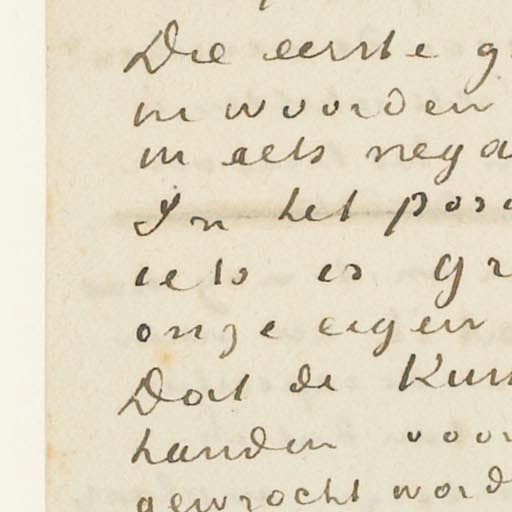 Die eerste g
in woorden
in iets nega
In het pos
iets is gr
onze eigen
Dat de Kuns
handen voor
gewrocht word